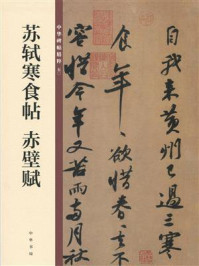 自我來黃州已過三寒
食年〻欲惜春〻去不
容惜今年又苦雨兩月秋
中華碑帖精粹
苏轼寒食帖 赤壁赋
中華書局